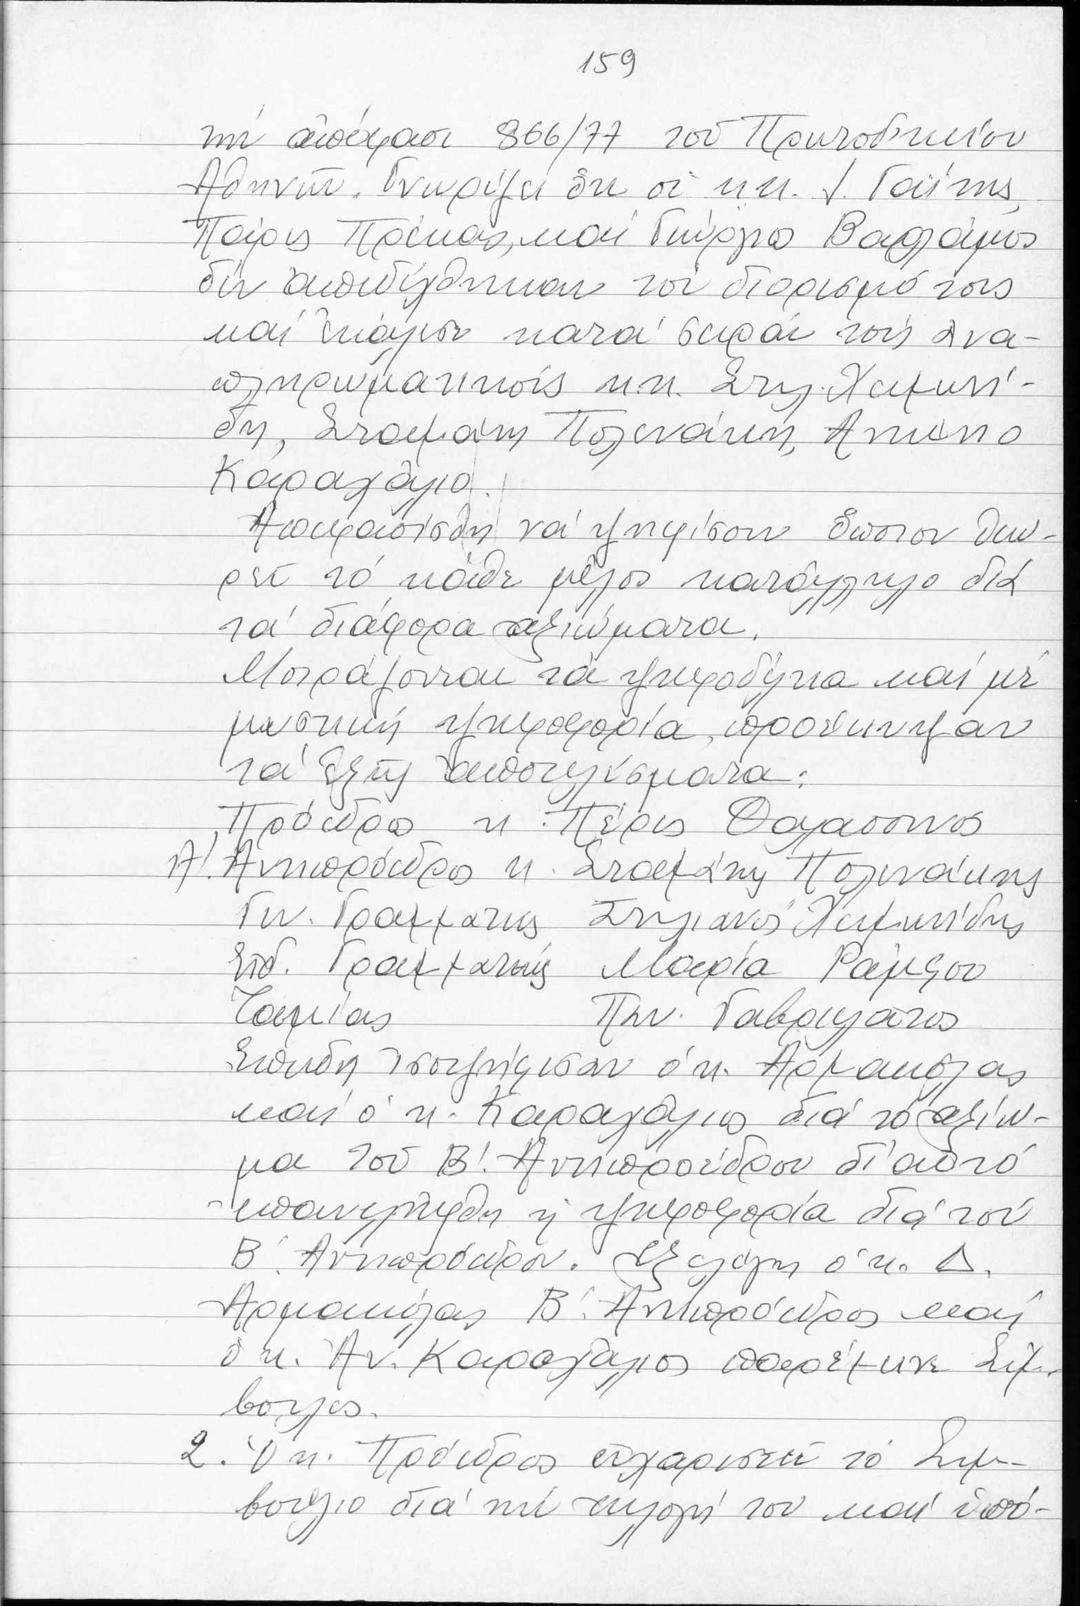 159
τήν ἀπόφασι 866/77 τοῦ Πρωτοδικείου
Ἀθηνῶν. Γνωρίζει ὅτι οἱ κ.κ. Γ. Γαΐτης,
Πάρις Πρέκας, καί Γεώργιος Βαρλάμος
δέν ἀπεδέχθηκαν τόν διορισμό τους
καί ἐκάλεσε κατά σειράν τούς ἀνα-
πληρωματικούς κ.κ. Στυλ. Χαιμωνί-
δη, Σταμάτη Πολενάκη, Ἀντώνιο
Καραχάλιο.
Ἀπεφασίσθη νά ψηφίσουν ὅποιον θεω-
ρεῖ τό κάθε μέλος κατάλληλο διά
τά διάφορα ἀξιώματα.
Μοιράζονται τά ψηφοδέλτια καί μέ
μυστική ψηφοφορία, προέκυψαν
τά ἑξῆς ἀποτελέσματα:
Πρόεδρος κ. Πέρις Θαλασσινός
Α΄. Ἀντιπρόεδρος κ. Σταμάτης Πολενάκης
Γεν. Γραμματεύς Στυλιανός Χαιμωνίδης
Εἰδ. Γραμματεύς Μαρία Ράμφου
Ταμίας Παν. Γαβριελάτος
Ἐπειδή ἰσοψήφισαν ὁ κ. Ἀρμακόλας
καί ὁ κ. Καραχάλιος διά τό ἀξίω-
μα τοῦ Β΄. Ἀντιπροέδρου δι' αὐτό
ἐπανελήφθη ἡ ψηφοφορία διά τόν
Β΄. Ἀντιπρόεδρον. Ἐξελέγη ὁ κ. Δ.
Ἀρμακόλας Β΄. Ἀντιπρόεδρος καί
ὁ κ. Ἀν. Καραχάλιος παρέμεινε Σύμ-
βουλος.
2. Ὁ κ. Πρόεδρος εὐχαριστεῖ τό Συμ-
βούλιο διά τήν ἐκλογή του καί ὑπό-